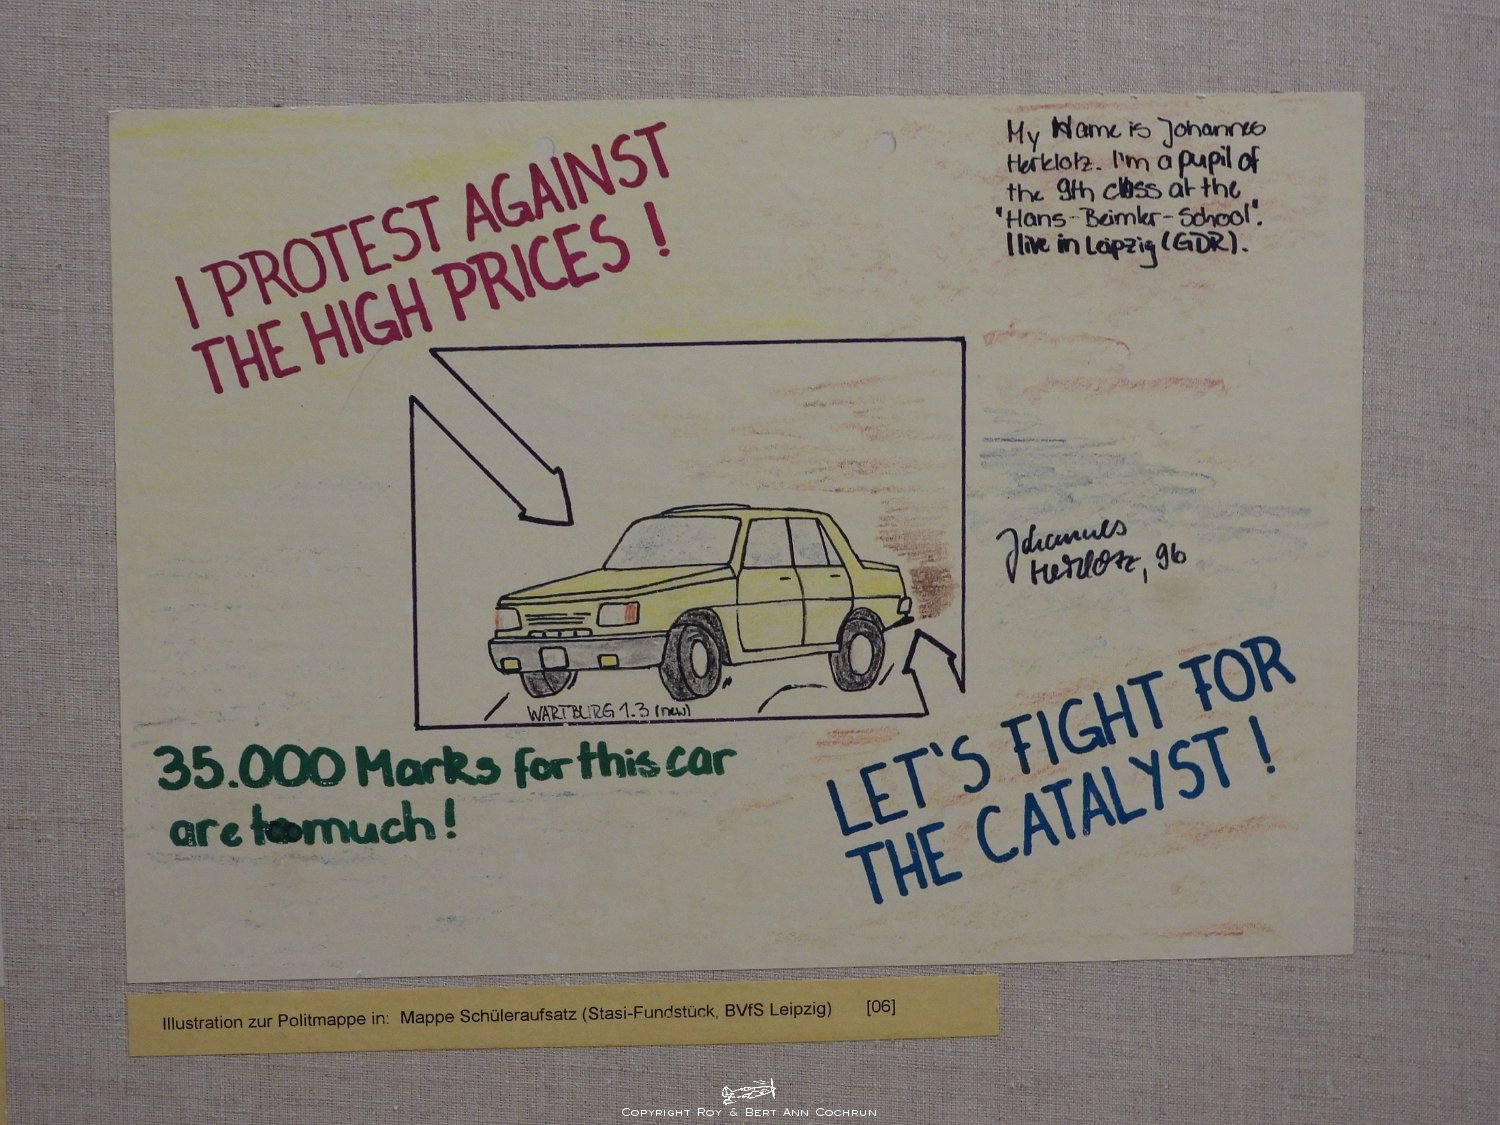 I PROTEST AGAINST
THE HIGH PRICES !
My Name is Johannes
Herklotz. I'm a pupil of
the 9th class at the
"Hans-Beimler-School".
I live in Leipzig (GDR).
Johannes
Herklotz, 9b
WARTBURG 1.3 (new)
35.000 Marks for this car
are too much !
LET'S FIGHT FOR
THE CATALYST !
Illustration zur Politmappe in: Mappe Schüleraufsatz (Stasi-Fundstück, BVfS Leipzig) [06]
COPYRIGHT ROY & BERT ANN COCHRUN